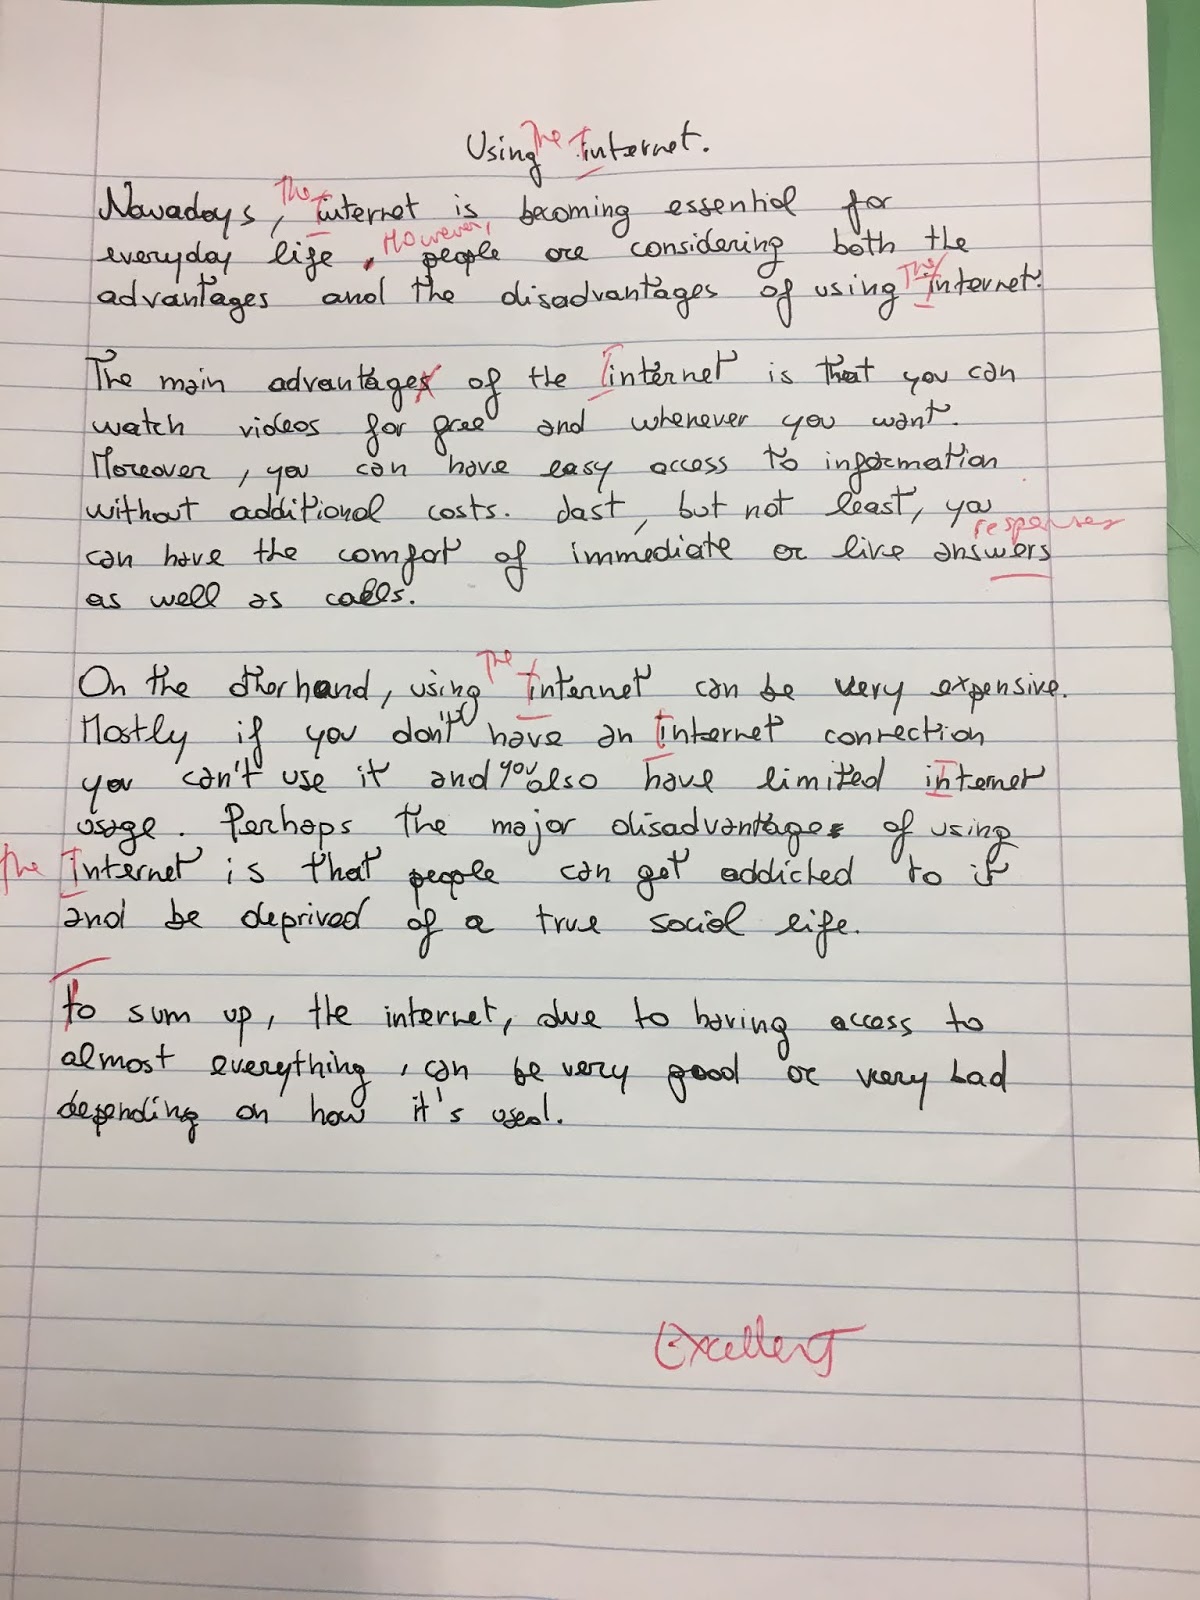 Using The Internet.
Nowadays, The Internet is becoming essential for
everyday life. However, people are considering both the
advantages and the disadvantages of using The Internet.
The main advantages of the Internet is that you can
watch videos for free and whenever you want.
Moreover, you can have easy access to information
without additional costs. Last, but not least, you
responses
can have the comfort of immediate or live answers
as well as calls.
On the other hand, using The Internet can be very expensive.
Mostly if you don't have an Internet connection
you can't use it and you also have limited Internet
usage. Perhaps the major disadvantages of using
The Internet is that people can get addicted to it
and be deprived of a true social life.
To sum up, the internet, due to having access to
almost everything, can be very good or very bad
depending on how it's used.
Excellent